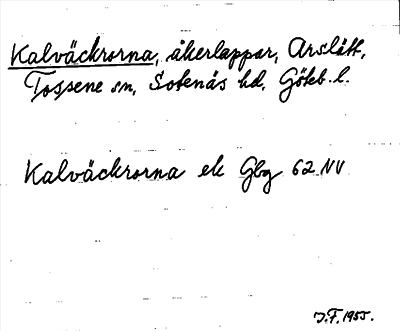 Kalväckrorna, åkerlappar, Arslätt,
Tossene sn, Sotenäs hd, Göteb. l.
Kalväckrorna ek Gbg 62 NV
J.F. 1955.